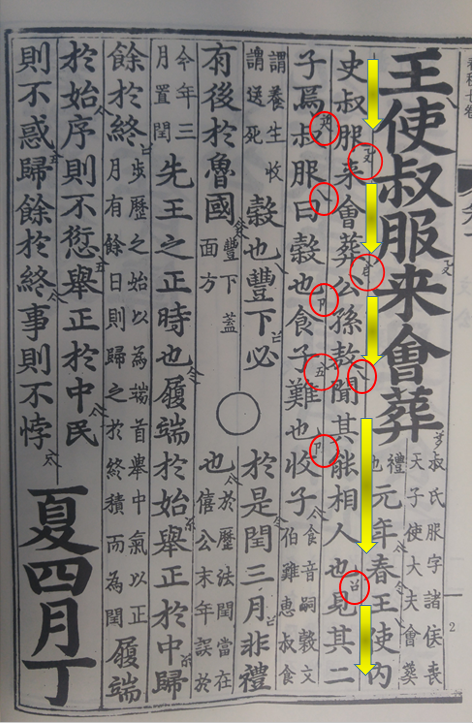 王使叔服来會葬
叔氏服字諸侯喪
天子使大夫會葬
禮
也
元年春王使内
史叔服来會葬公孫敖聞其能相人也見其二
子焉叔服曰穀也食子難也收子
食音嗣穀文
伯難惠叔食
謂養生收
謂送死
穀也豐下必
有後於魯國
豐下蓋
面方
○
於是閏三月非禮
也
於歷法閏當在
僖公末年誤於
今年三
月置閏
先王之正時也履端於始舉正於中歸
餘於終
步歷之始以為端首舉中氣以正
月有餘日則歸之於終積而為閏
履端
於始序則不愆舉正於中民
則不惑歸餘於終事則不悖
夏四月丁
2